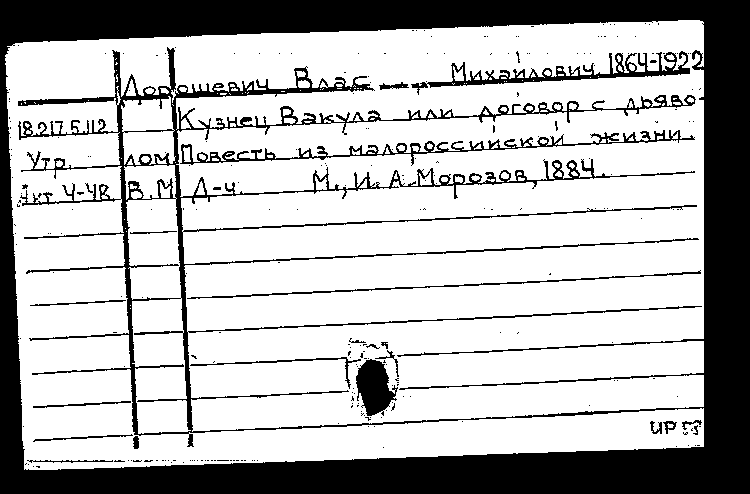 Дорошевич, Влас Михайлович, 1864-1922
18.217.5.112 Кузнец Вакула или договор с дьяво-
Утр. лом. Повесть из малороссийской жизни.
Акт 4-48 В.М. Д-ч. М., И. А. Морозов, 1884.